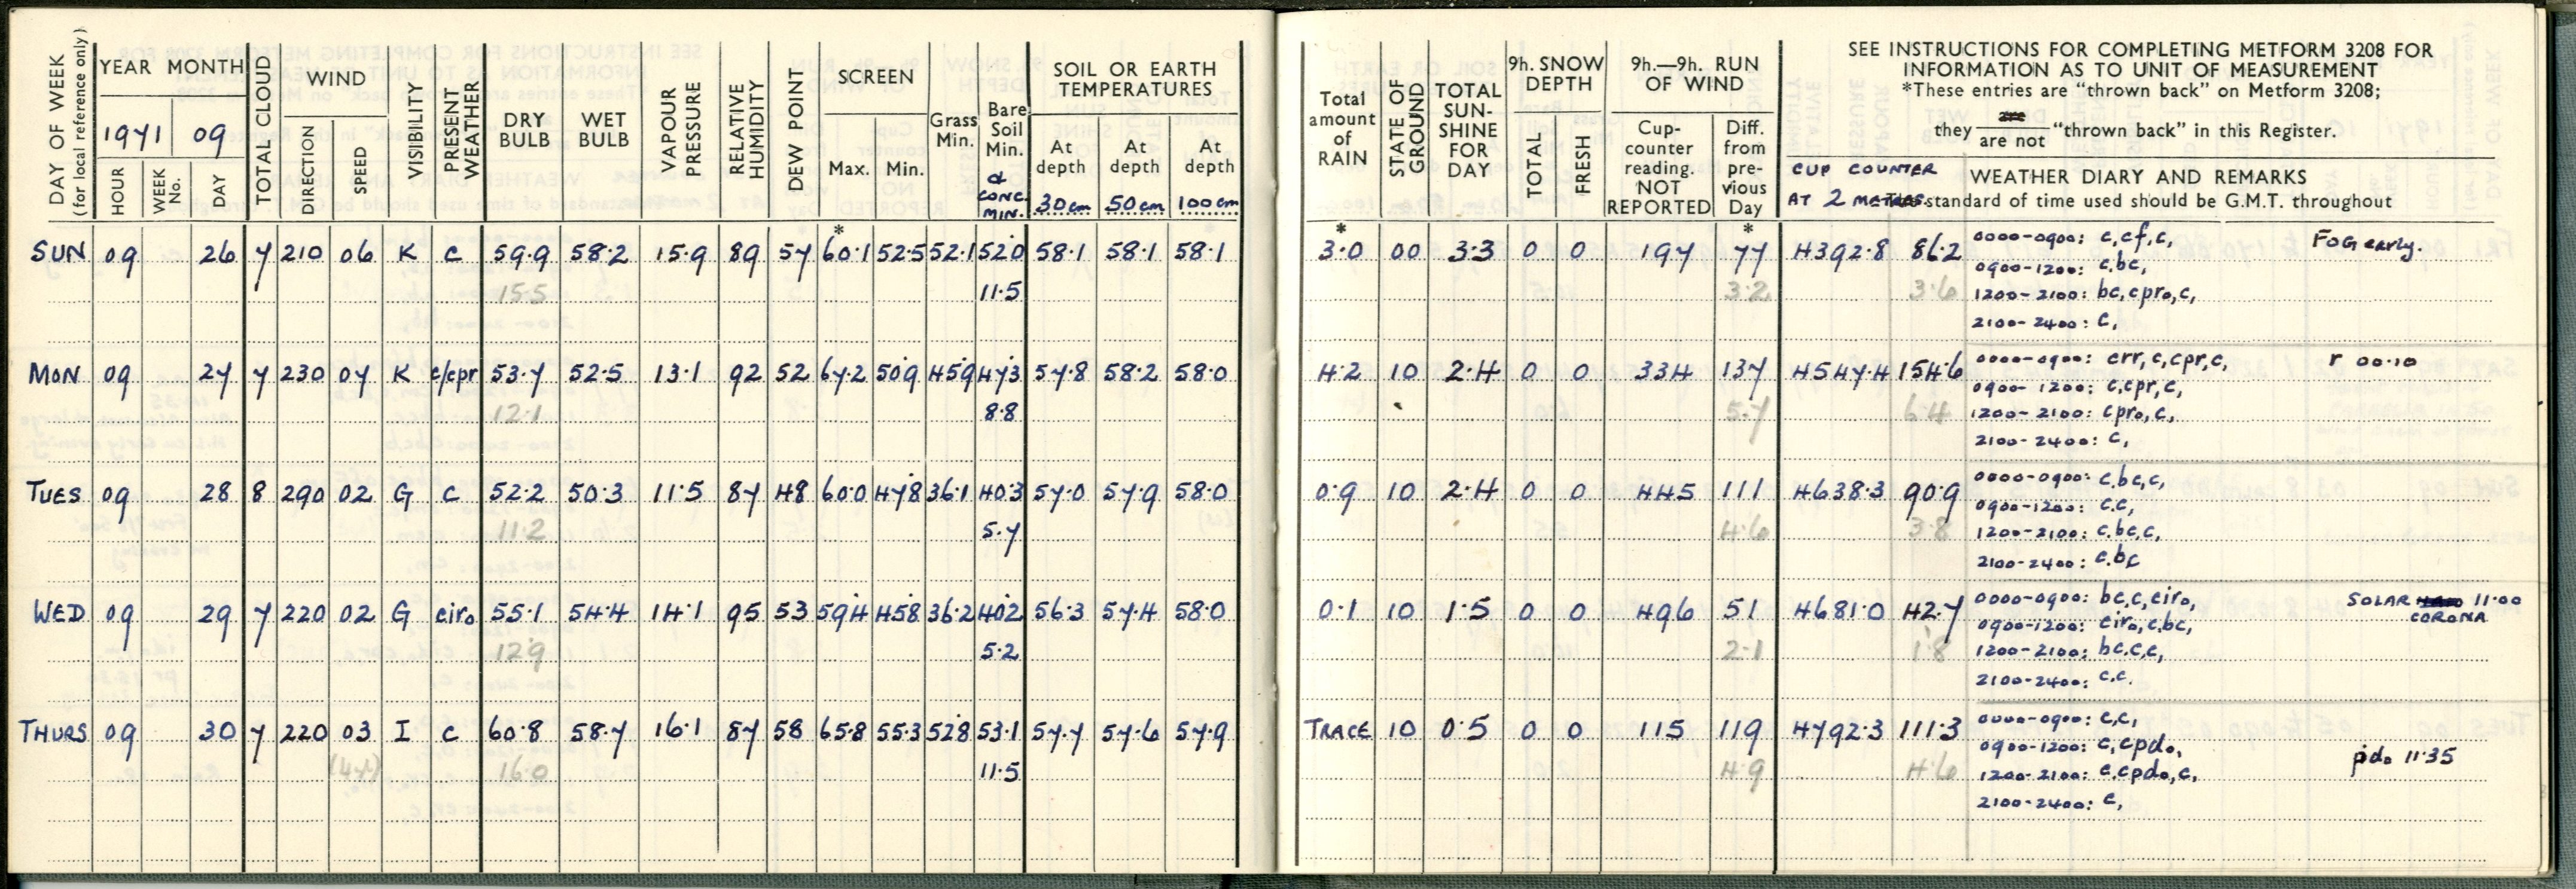 DAY OF WEEK
(for local reference only)
YEAR MONTH
1971 09
HOUR
WEEK No.
DAY
TOTAL CLOUD
WIND
DIRECTION
SPEED
VISIBILITY
PRESENT WEATHER
DRY BULB
WET BULB
VAPOUR PRESSURE
RELATIVE HUMIDITY
DEW POINT
SCREEN
Max. Min.
Grass Min.
Bare Soil Min.
& CONC. MIN.
SOIL OR EARTH TEMPERATURES
At depth 30cm
At depth 50cm
At depth 100cm
Total amount of RAIN
STATE OF GROUND
TOTAL SUN-SHINE FOR DAY
9h. SNOW DEPTH
TOTAL
FRESH
9h.—9h. RUN OF WIND
Cup-counter reading. NOT REPORTED
Diff. from pre-vious Day
SEE INSTRUCTIONS FOR COMPLETING METFORM 3208 FOR
INFORMATION AS TO UNIT OF MEASUREMENT
*These entries are "thrown back" on Metform 3208;
they are / are not "thrown back" in this Register.
CUP COUNTER
AT 2 METRES
WEATHER DIARY AND REMARKS
The standard of time used should be G.M.T. throughout
SUN 09 26 7 210 06 K c 59.9 58.2 15.9 89 57 *60.1 52.5 52.1 52.0 58.1 58.1 58.1 *3.0 00 3.3 0 0 197 *77 4392.8 86.2
15.5 11.5 3.2 3.6
0000-0900: c,cf,c, FOG early.
0900-1200: c,bc,
1200-2100: bc,cpr₀,c,
2100-2400: c,
MON 09 27 7 230 07 K c/cpr 53.7 52.5 13.1 92 52 67.2 50.9 45.9 47.3 57.8 58.2 58.0 4.2 10 2.4 0 0 334 137 4547.4 154.6
12.1 8.8 5.7 6.4
0000-0900: crr,c,cpr,c, r 00.10
0900-1200: c,cpr,c,
1200-2100: cpr₀,c,
2100-2400: c,
TUES 09 28 8 290 02 G c 52.2 50.3 11.5 87 48 60.0 47.8 36.1 40.3 57.0 57.9 58.0 0.9 10 2.4 0 0 445 111 4638.3 90.9
11.2 5.7 4.6 3.8
0000-0900: c,bc,c,
0900-1200: c.c,
1200-2100: c.bc,c,
2100-2400: c.bc
WED 09 29 7 220 02 G cir₀ 55.1 54.4 14.1 95 53 59.4 45.8 36.2 40.2 56.3 57.4 58.0 0.1 10 1.5 0 0 496 51 4681.0 42.7
12.9 5.2 2.1 1.8
0000-0900: bc,c,cir₀, SOLAR HALO 11:00
0900-1200: cir₀,c,bc, CORONA
1200-2100: bc.c,c,
2100-2400: c.c.
THURS 09 30 7 220 03 I c 60.8 58.7 16.1 87 58 65.8 55.3 52.8 53.1 57.7 57.6 57.9 TRACE 10 0.5 0 0 115 119 4792.3 111.3
16.0 11.5 4.9 4.6
0000-0900: c,c,
0900-1200: c,cpd₀, pd₀ 11.35
1200-2100: c.cpd₀,c,
2100-2400: c,